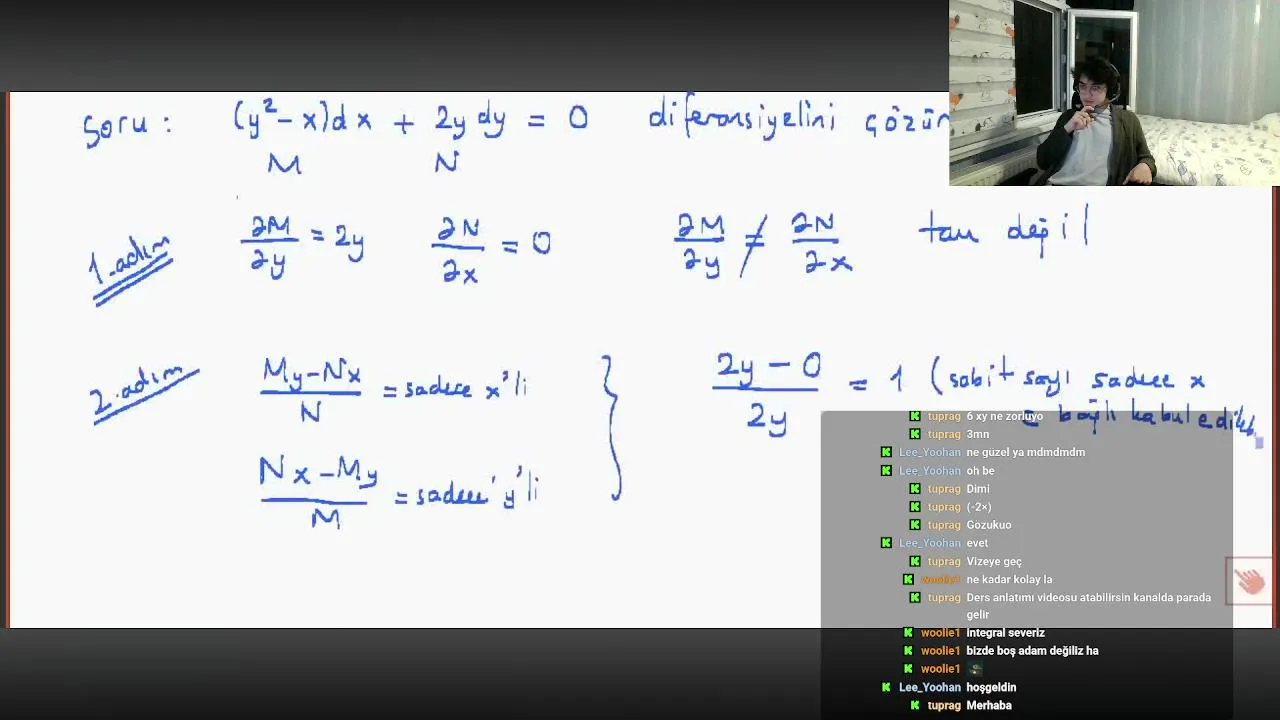 soru: (y² - x)dx + 2y dy = 0 diferansiyelini çözün
M N
1.adım ∂M/∂y = 2y ∂N/∂x = 0 ∂M/∂y ≠ ∂N/∂x tam değil
2.adım My-Nx/N = sadece x'li } 2y - 0/2y = 1 (sabit sayı sadece x
e bağlı kabul edilir
Nx-My/M = sadece y'li
tuprag 6 xy ne zorluyo
tuprag 3mn
Lee_Yoohan ne güzel ya mdmdmdm
Lee_Yoohan oh be
tuprag Dimi
tuprag (-2×)
tuprag Gözukuo
Lee_Yoohan evet
tuprag Vizeye geç
woolie1 ne kadar kolay la
tuprag Ders anlatımı videosu atabilirsin kanalda parada
gelir
woolie1 integral severiz
woolie1 bizde boş adam değiliz ha
woolie1
Lee_Yoohan hoşgeldin
tuprag Merhaba